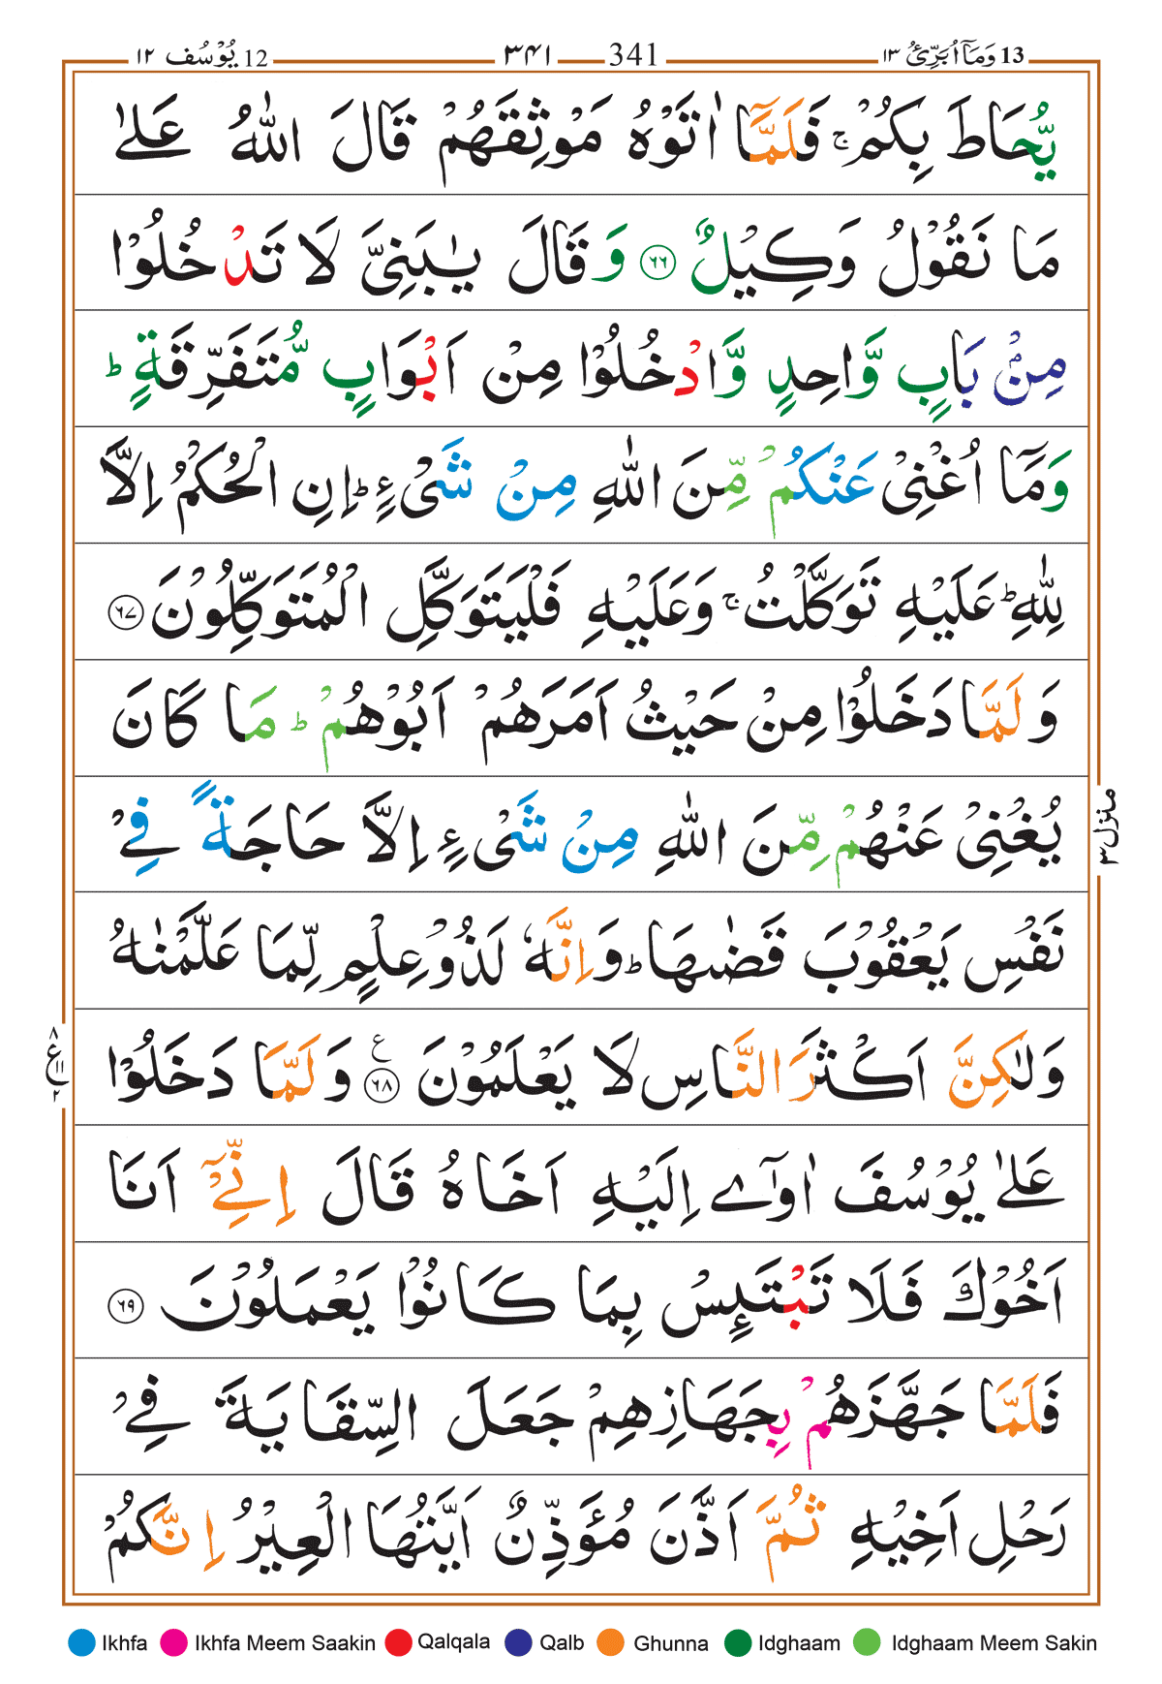 13 وَمَاۤ اُبَرِّئُ ١٣ 341 ٣٤١ 12 يُوْسُف ١٢
يُّحَاطَ بِكُمْ ۚ فَلَمَّاۤ اٰتَوْهُ مَوْثِقَهُمْ قَالَ اللّٰهُ عَلٰى
مَا نَقُوْلُ وَكِيْلٌ ٦٦ وَقَالَ يٰبَنِىَّ لَا تَدْخُلُوْا
مِنْۢ بَابٍ وَّاحِدٍ وَّادْخُلُوْا مِنْ اَبْوَابٍ مُّتَفَرِّقَةٍ ؕ
وَمَاۤ اُغْنِىْ عَنْكُمْ مِّنَ اللّٰهِ مِنْ شَىْءٍ ؕ اِنِ الْحُكْمُ اِلَّا
لِلّٰهِ ؕ عَلَيْهِ تَوَكَّلْتُ ۚ وَعَلَيْهِ فَلْيَتَوَكَّلِ الْمُتَوَكِّلُوْنَ ٦٧
وَلَمَّا دَخَلُوْا مِنْ حَيْثُ اَمَرَهُمْ اَبُوْهُمْ ؕ مَا كَانَ
يُغْنِىْ عَنْهُمْ مِّنَ اللّٰهِ مِنْ شَىْءٍ اِلَّا حَاجَةً فِىْ
نَفْسِ يَعْقُوْبَ قَضٰىهَا ؕ وَاِنَّهٗ لَذُوْ عِلْمٍ لِّمَا عَلَّمْنٰهُ
وَلٰكِنَّ اَكْثَرَ النَّاسِ لَا يَعْلَمُوْنَ ٦٨ ع وَلَمَّا دَخَلُوْا
عَلٰى يُوْسُفَ اٰوٰۤى اِلَيْهِ اَخَاهُ قَالَ اِنِّىْۤ اَنَا
اَخُوْكَ فَلَا تَبْتَئِسْ بِمَا كَانُوْا يَعْمَلُوْنَ ٦٩
فَلَمَّا جَهَّزَهُمْ بِجَهَازِهِمْ جَعَلَ السِّقَايَةَ فِىْ
رَحْلِ اَخِيْهِ ثُمَّ اَذَّنَ مُؤَذِّنٌ اَيَّتُهَا الْعِيْرُ اِنَّكُمْ
منزل ٣
٨ ع ١١ ٢
Ikhfa Ikhfa Meem Saakin Qalqala Qalb Ghunna Idghaam Idghaam Meem Sakin